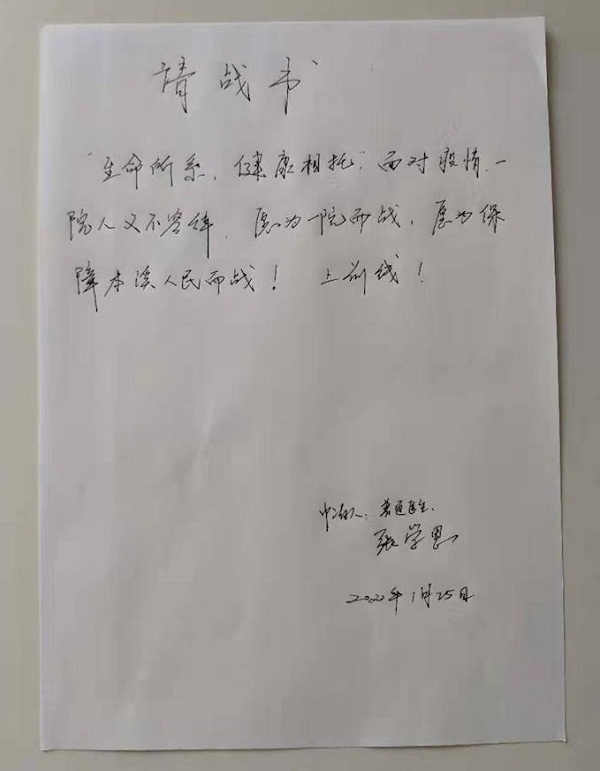 请战书
“生命所系，健康相托”面对疫情，一
院人义不容辞．愿为一院而战，愿为保
障本溪人民而战！ 上前线！
申请人：普通医生．
张学思
2020年1月25日